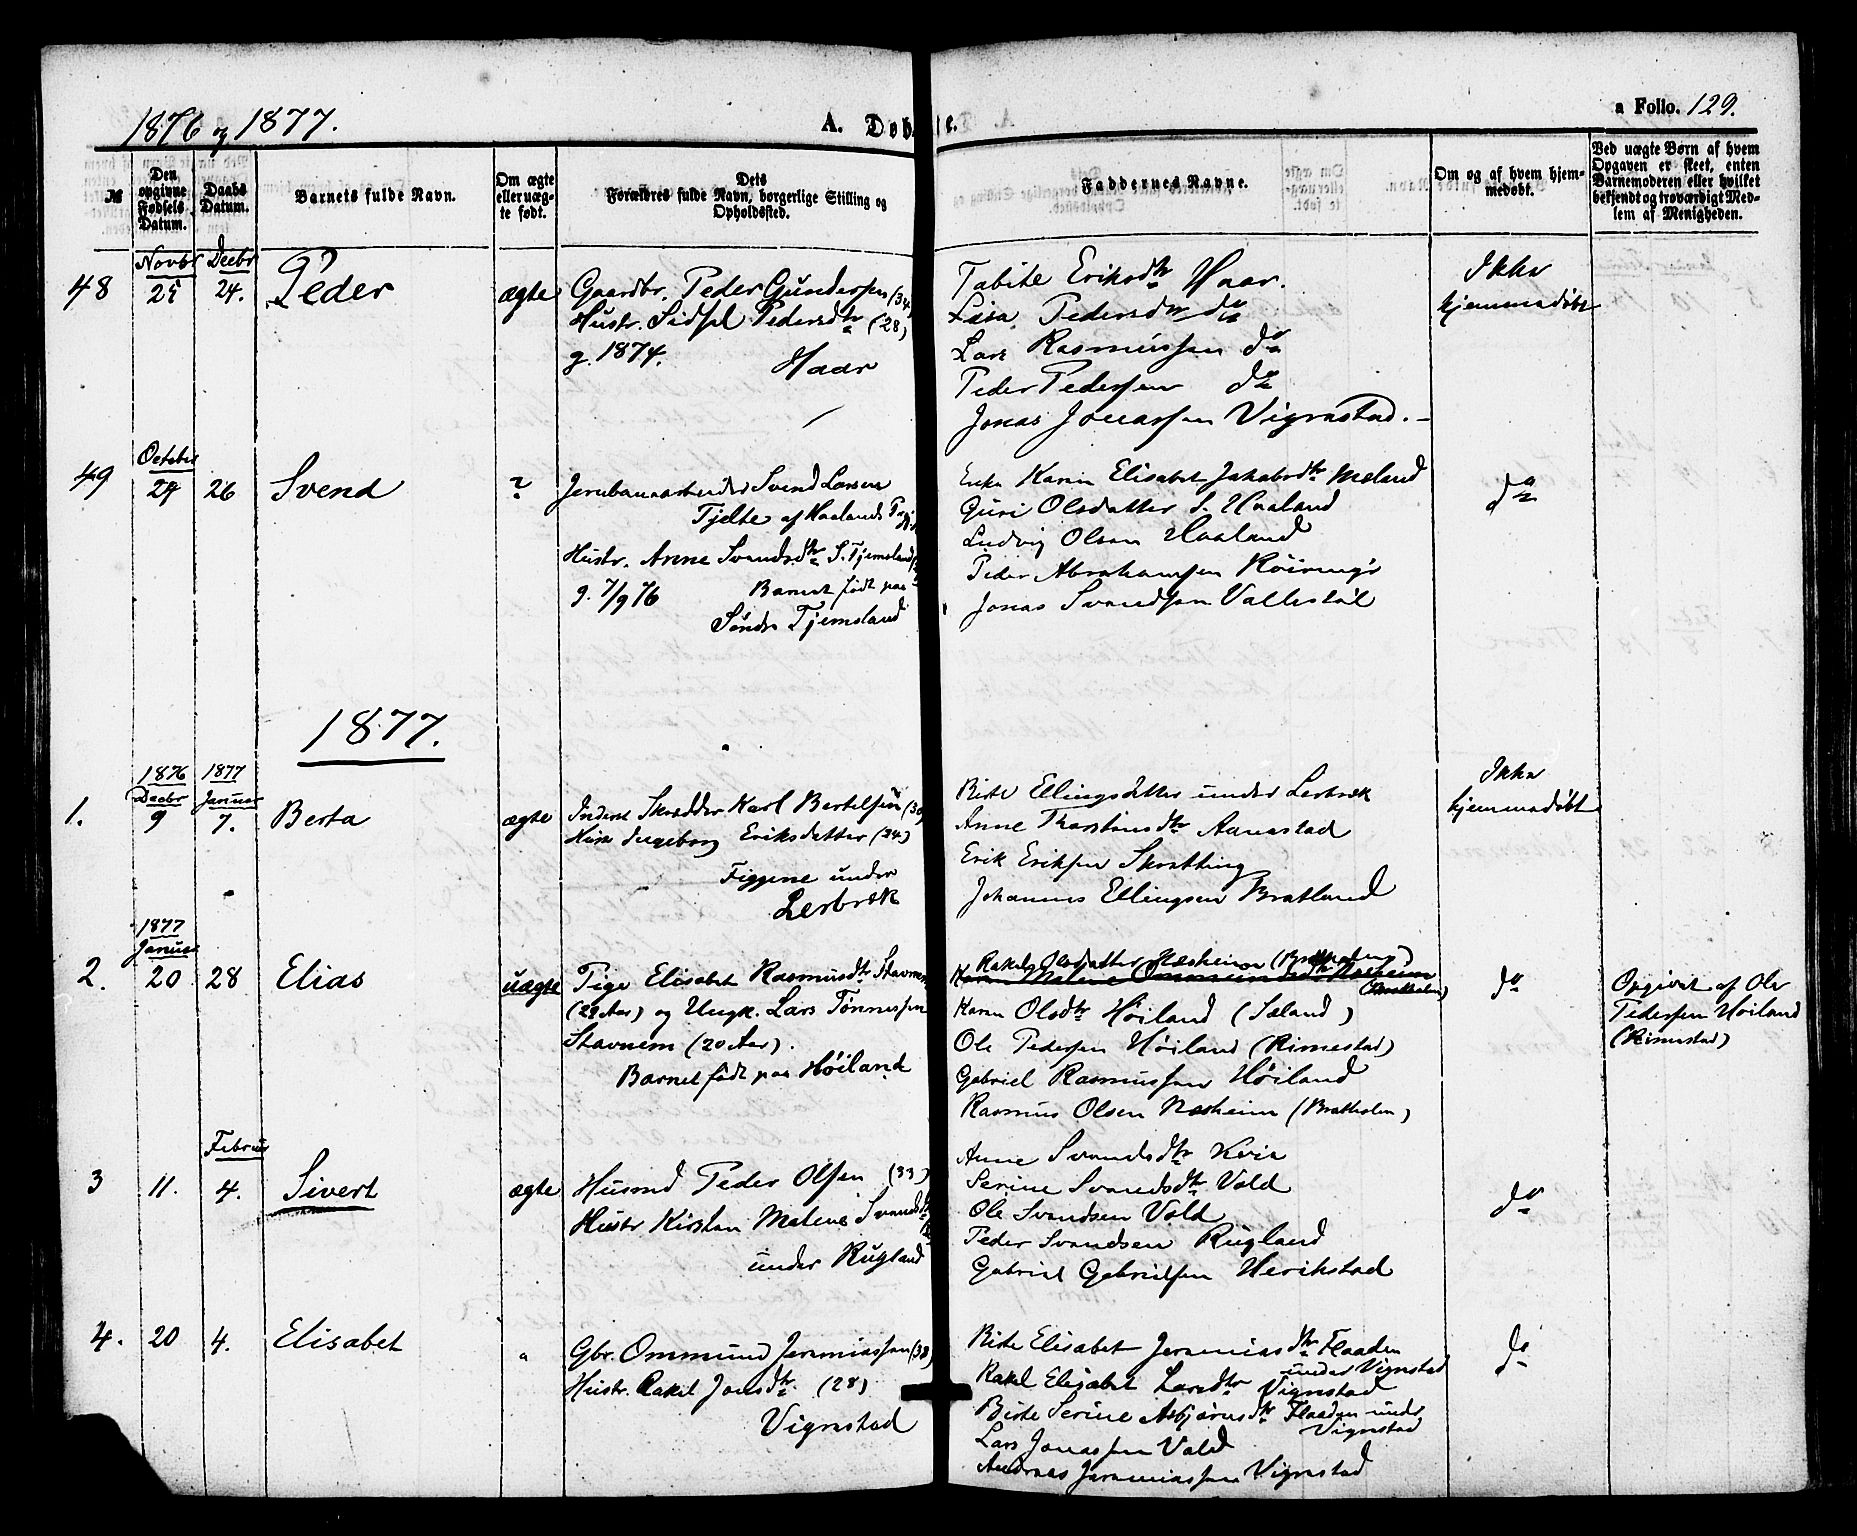 1876 og 1877.
A. Døb
e.
a Folio. 129.
№
Den opgivne Fødsels Datum.
Daabs Datum.
Barnets fulde Navn.
Om ægte eller uægte født.
Dets Forældres fulde Navn, borgerlige Stilling og Opholdssted.
Faddernes Navne.
Om og af hvem hjemmedøbt.
Ved uægte Børn af hvem Opgaven er skeet, enten Barnemoderen eller hvilket bekjendt og troværdigt Medlem af Menigheden.
Novbr Decbr
48 25 24. Peder ægte
Gaardbr. Peder Gundersen (34)
Hustr. Sidsel Pedersdtr (28)
g. 1874. Haar
Tabite Eriksdtr Haar.
Lisa Pedersdtr do
Lars Rasmussen do
Peder Pedersen do
Jonas Jonassen Vignestad.
Ikke
hjemmedøbt
October
49 29 26 Svend
Jernbanearbeider Svend Larsen
Tjelte af Haalands
Hustr. Anne Svendsdtr S. Tjemsland
g. 7/9 76 Barnet født paa
Søndr Tjemsland
Enke Karin Elisabet Jakobsdtr Mæland
Guri Olsdatter S. Haaland
Ludvig Olsen Haaland
Peder Abrahamsen
Jonas Svendsen
do
1877.
1876 1877
Decbr Januar
1. 9 7. Berta ægte
Inderst Skrædder Karl Bertelsen (30)
Hustr Ingeborg Eriksdatter (34)
Figgene under
Lerbræk
Birte Ellingsdatter under Lerbræk
Anne Thorstensdtr Aanestad
Erik Eriksen Skratting
Johannes Ellingsen Bratland
Ikke
hjemmedøbt
1877
Januar
2. 20 28 Elias uægte
Pige Elisabet Rasmusdtr Stavnem
(22 Aar) og Ungk. Lars Tønnessen
Stavnem (20 Aar).
Barnet født paa Høiland
Rakel Olsdatter Næsheim (Brekholen)
Karen Malene
Karen Olsdtr Høiland (Sæland)
Ole Pedersen Høiland (Rimestad)
Gabriel Rasmussen Høiland
Rasmus Olsen Næsheim (Brækholen)
do
Opgivet af Ole
Pedersen Høiland
(Rimestad)
Februar
3 11. 4. Sivert ægte
Husmd Peder Olsen (33)
Hustr Kirsten Malene Svendsdtr
under Rugland
Anne Svendsdtr Kvia
Serine Svendsdtr Vold
Ole Svendsen Vold
Peder Svendsen Rugland
Gabriel Gabrielsen Herikstad
do
4. 20 4. Elisabet "
Gbr. Ommund Jeremiassen (38)
Hustr. Rakel Jonsdtr. (28)
Vignestad
Birte Elisabet Jeremiasdtr Flaaden
under Vignestad
Rakel Elisabet Larsdtr Vignestad
Birte Serine Asbjørnsdtr Flaaden under
Vignestad
Lars Jonassen Vold
Andreas Jeremiassen Vignestad
do